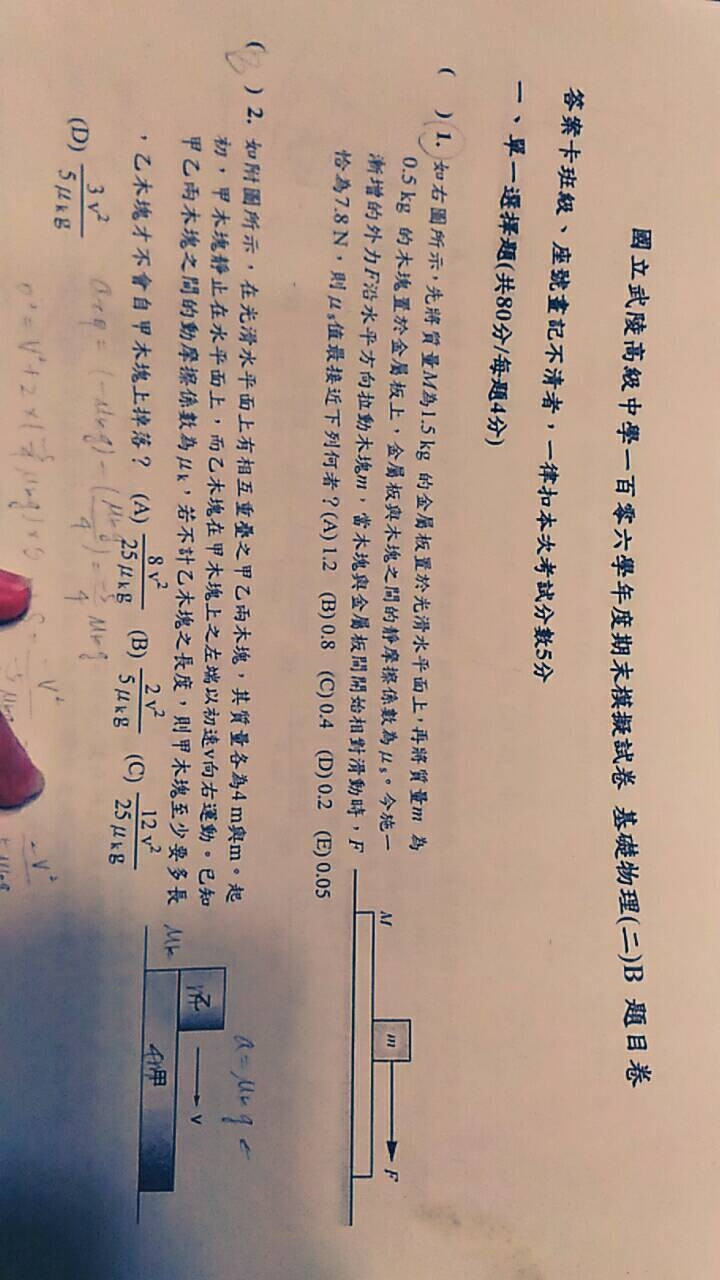 國立武陵高級中學一百零六學年度期末模擬試卷 基礎物理(二)B 題目卷
答案卡班級、座號畫記不清者，一律扣本次考試分數5分
一、單一選擇題(共80分/每題4分)
( ) 1. 如右圖所示，先將質量M為1.5 kg 的金屬板置於光滑水平面上，再將質量m 為
0.5 kg 的木塊置於金屬板上，金屬板與木塊之間的靜摩擦係數為μs。今施一
漸增的外力F沿水平方向拉動木塊m，當木塊與金屬板間開始相對滑動時，F
恰為7.8 N，則μs值最接近下列何者？(A) 1.2 (B) 0.8 (C) 0.4 (D) 0.2 (E) 0.05
M
m
F
(B) 2. 如附圖所示，在光滑水平面上有相互重疊之甲乙兩木塊，其質量各為4 m與m。起
初，甲木塊靜止在水平面上，而乙木塊在甲木塊上之左端以初速v向右運動。已知
甲乙兩木塊之間的動摩擦係數為μk，若不計乙木塊之長度，則甲木塊至少要多長
，乙木塊才不會自甲木塊上掉落？ (A) 8v²/25μkg (B) 2v²/5μkg (C) 12v²/25μkg
(D) 3v²/5μkg
乙
v
甲
4m
μk
a = μkg
= (-μkg) - (μkg/4) = -5/4 μkg
0² = V² + 2 × (-5/4 μkg) × S